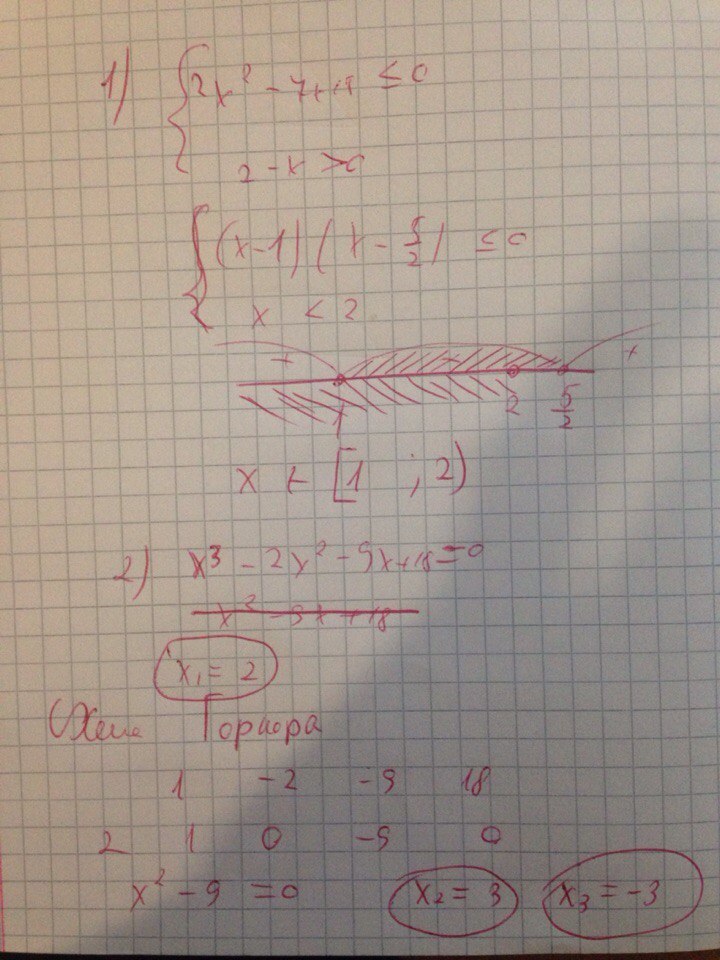 1) { 2x² - 7x+5 ≤ 0
2-x >0
{ (x-1) (x - 5/2) ≤ 0
x < 2
+ - +
1 2 5/2
x ∈ [1 ; 2)
2) x³ - 2x² - 9x+18=0
x² - 9x + 18
x₁ = 2
Схема Горнера
1 -2 -9 18
2 1 0 -9 0
x² - 9 = 0 x₂ = 3 x₃ = -3